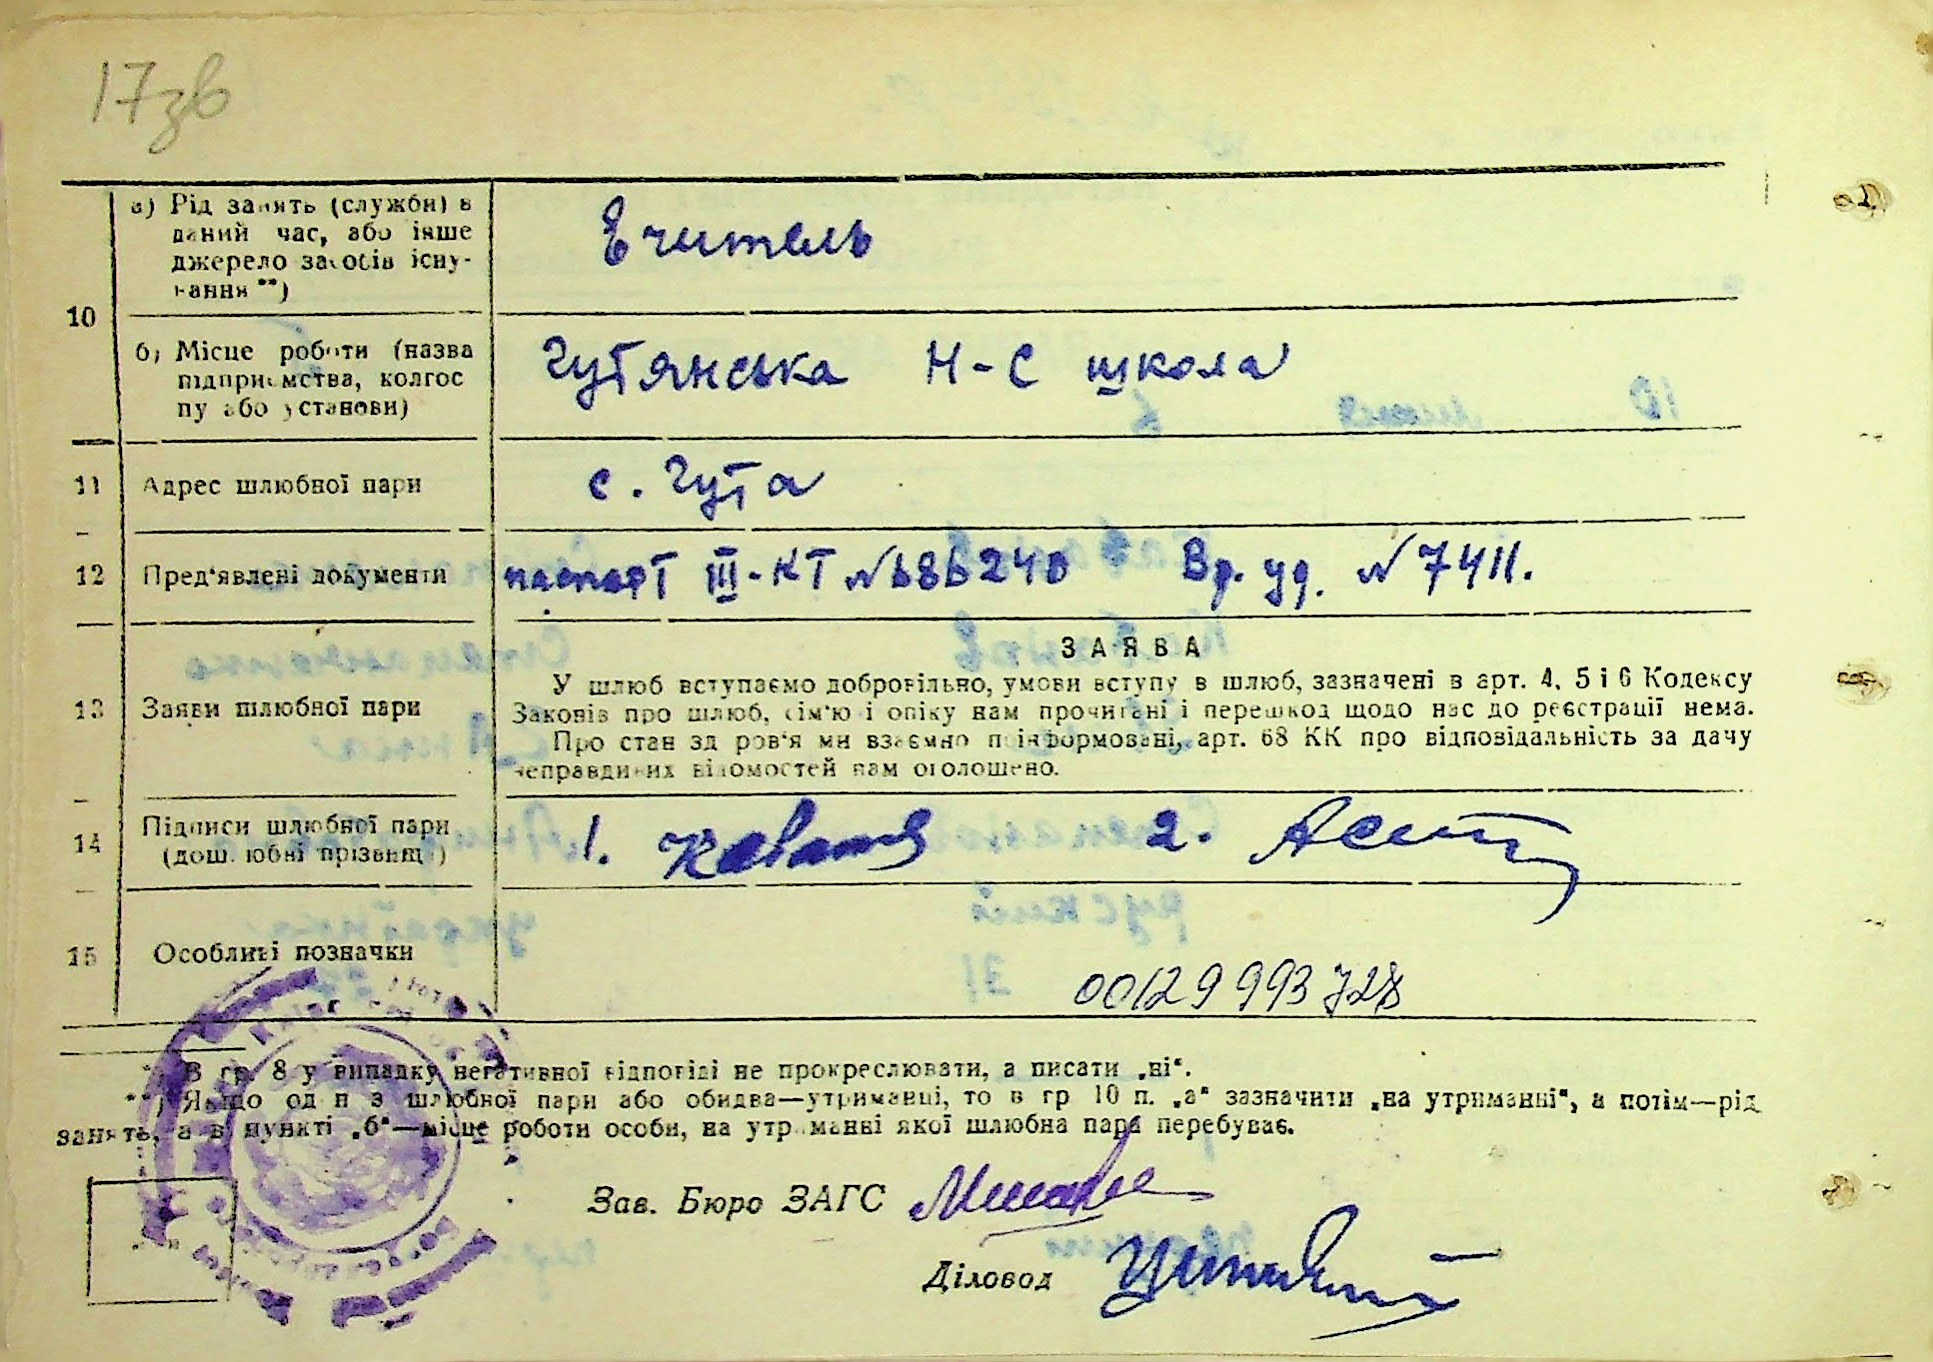 17зв
а) Рід занять (служби) в
даний час, або інше
джерело засобів існу-
вання **)
Вчитель
10
б) Місце роботи (назва
підприємства, колгос
пу або установи)
Гутянська Н-С школа
11 Адрес шлюбної пари с. Гута
12 Пред'явлені документи паспорт III-КТ № 686240 Вр. уд. № 7411.
ЗАЯВА
13 Заяви шлюбної пари
У шлюб вступаємо добровільно, умови вступу в шлюб, зазначені в арт. 4, 5 і 6 Кодексу
Законів про шлюб, сім'ю і опіку нам прочитані і перешкод щодо нас до реєстрації нема.
Про стан здоров'я ми взаємно поінформовані, арт. 68 КК про відповідальність за дачу
неправдивих відомостей нам оголошено.
14 Підписи шлюбної пари
(дошлюбні прізвища)
1. 2.
15 Особливі позначки
00129993728
*) В гр. 8 у випадку негативної відповіді не прокреслювати, а писати „ні“.
**) Якщо один з шлюбної пари або обидва—утриманці, то в гр 10 п. „а“ зазначити „на утриманні“, а потім—рід
занять, а в пункті „б“—місце роботи особи, на утриманні якої шлюбна пара перебуває.
Зав. Бюро ЗАГС
Діловод